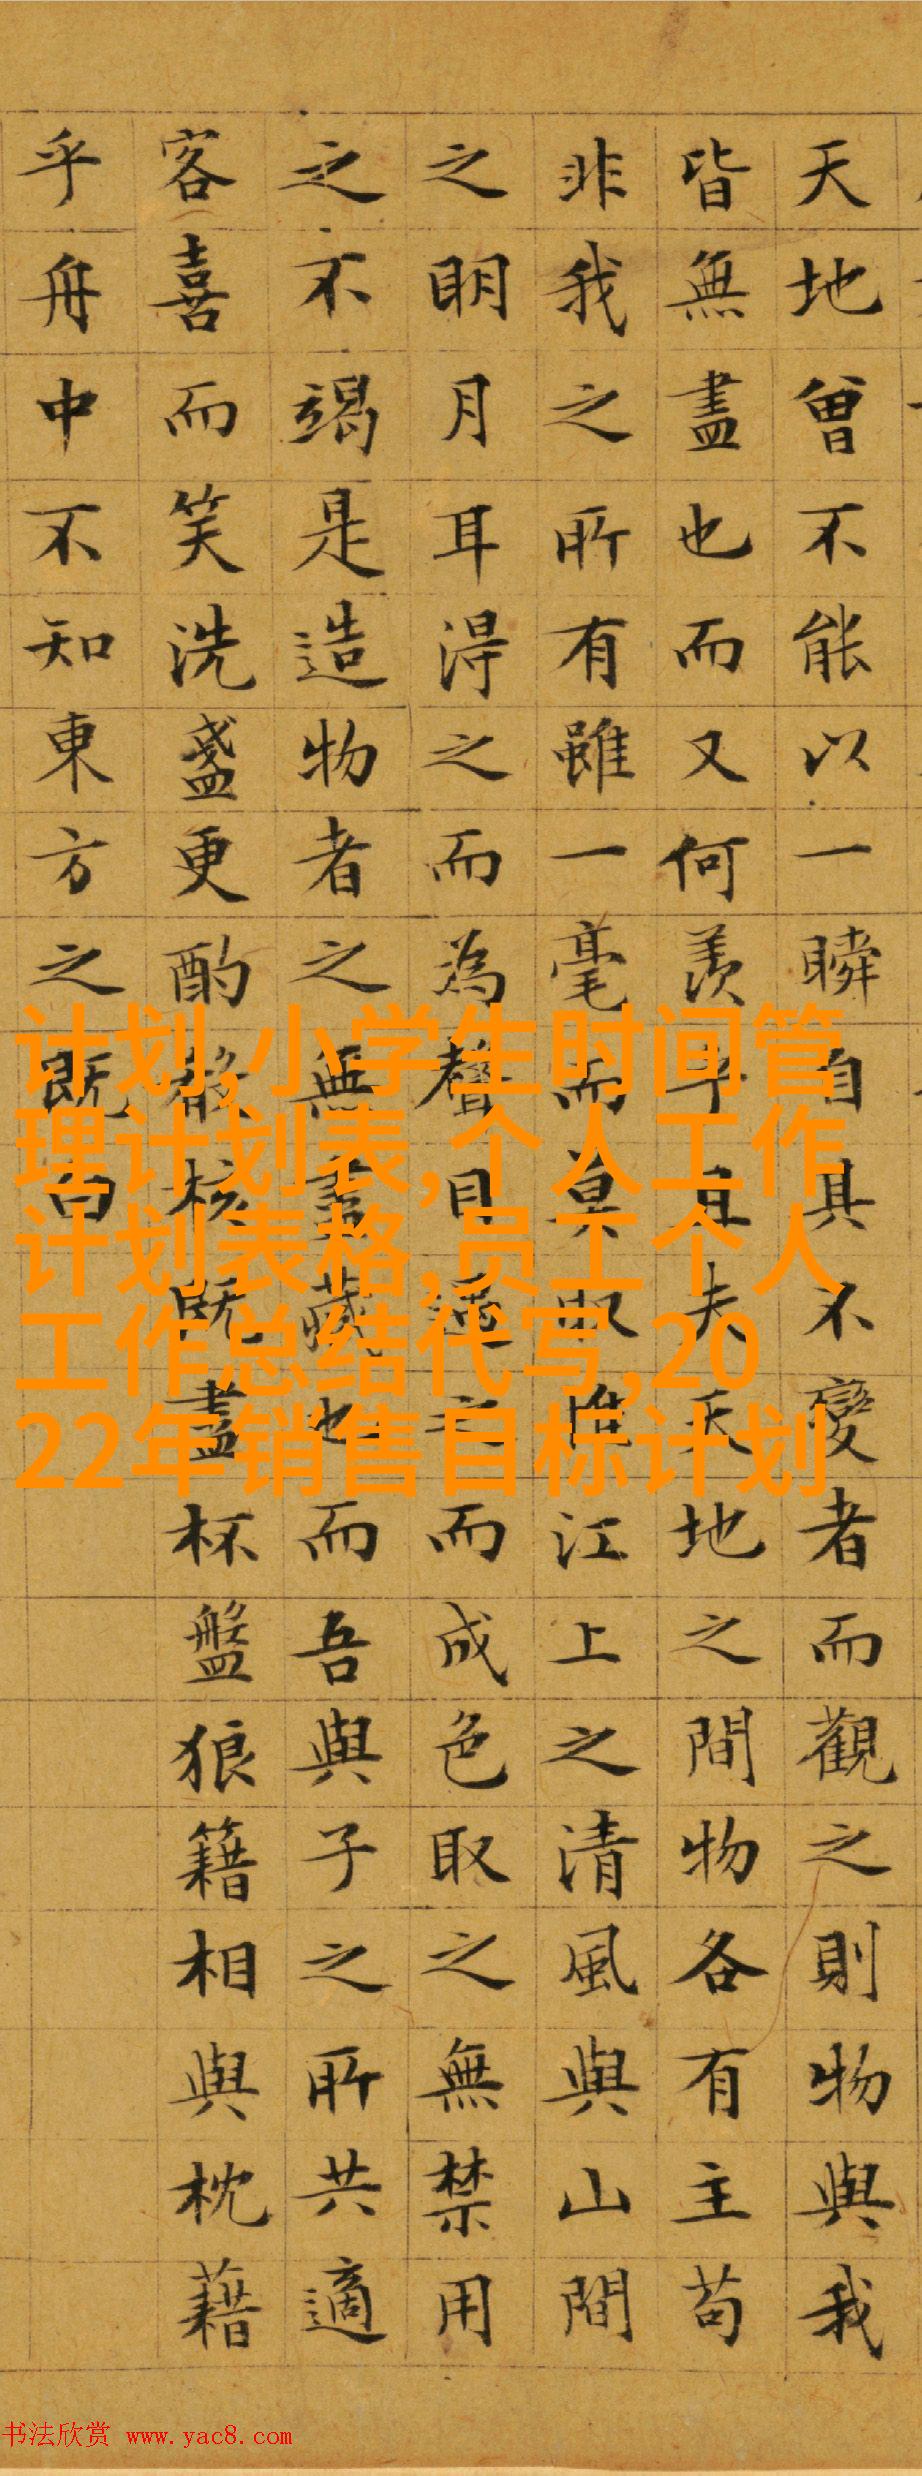 天地曾不能以一瞬自其不變者而觀之則物與我
皆無盡也而又何羨乎且夫天地之間物各有主苟
非我之所有雖一毫而莫取惟江上之清風與山間
之眀月耳得之而為聲目遇之而成色取之無禁用
之不竭是造物者之無盡藏也而吾與子之所共適
客喜而笑洗盞更酌殽核既盡杯盤狼籍相與枕藉
乎舟中不知東方之既白
计划,小学生时间管
理计划表,个人工作
计划表格,员工个人
工作总结代写,20
22年销售目标计划
书法欣赏 www.yac8.com